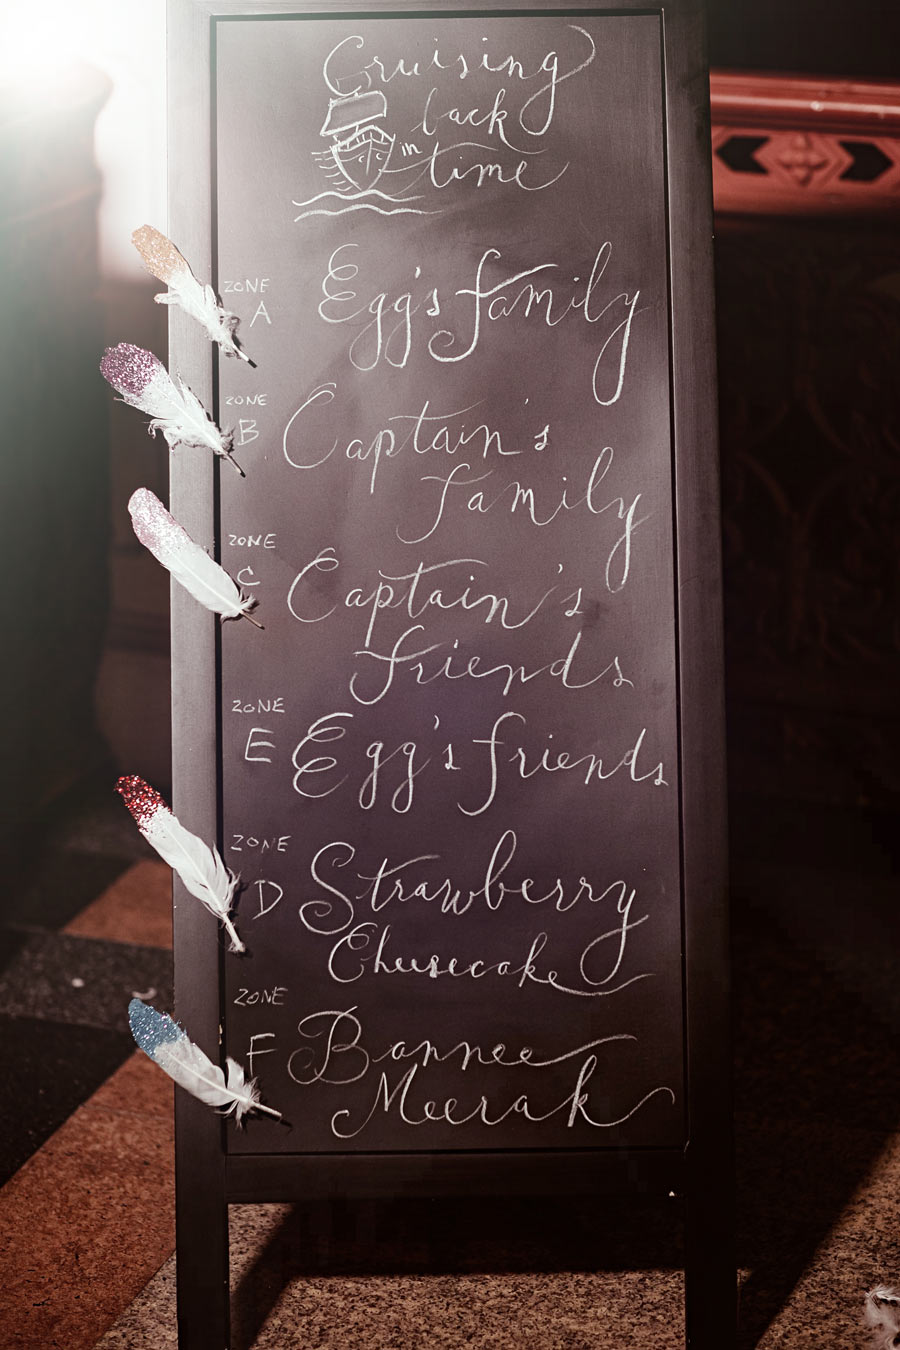 Cruising
back
in time
ZONE
A Egg's family
ZONE
B Captain's
family
ZONE
C Captain's
friends
ZONE
E Egg's friends
ZONE
D Strawberry
Cheesecake
ZONE
F Bannee
Meerak